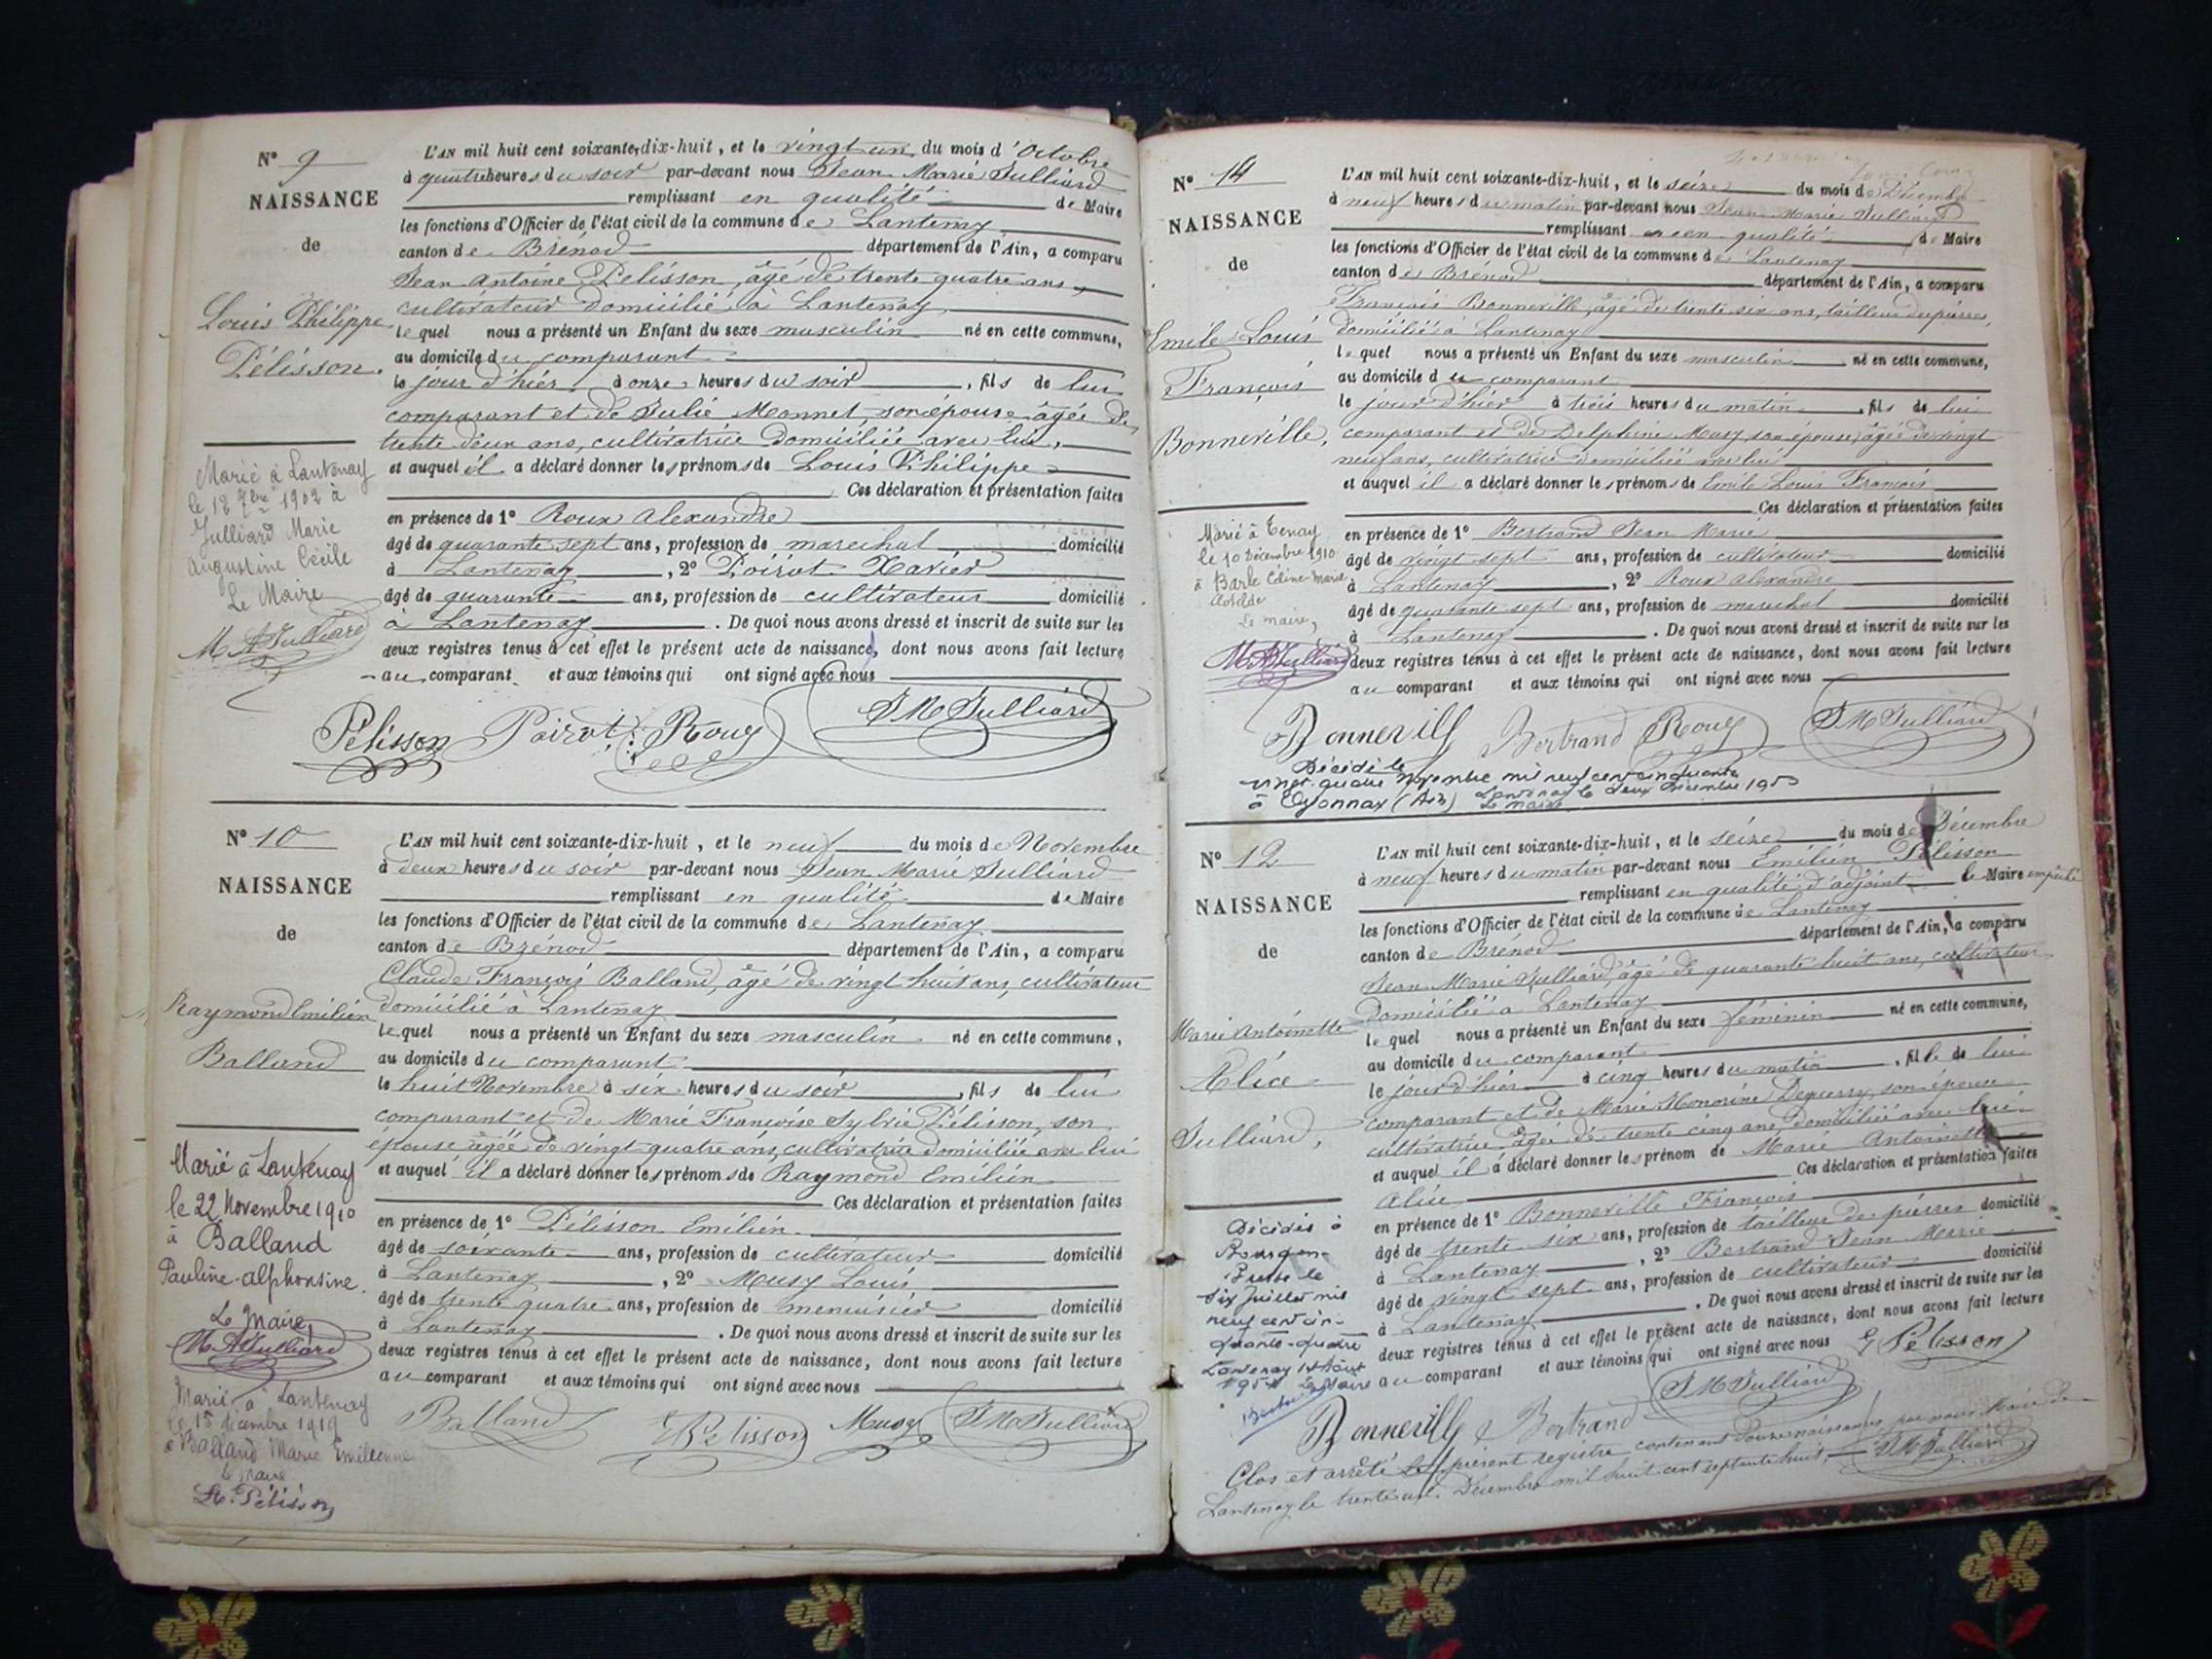 N° 9
NAISSANCE
de
Louis Philippe
Pélisson.
Marié à Lantenay
le 12 7bre 1902 à
Julliard Marie
Augustine Cécile
Le Maire
M A Julliard
L'AN mil huit cent soixante-dix-huit, et le vingt un du mois d'Octobre
à quatre heures du soir par-devant nous Jean Marie Julliard
remplissant en qualité de Maire
les fonctions d'Officier de l'état civil de la commune de Lantenay
canton de Brénod département de l'Ain, a comparu
Jean Antoine Pelisson, âgé de trente quatre ans,
cultivateur domicilié à Lantenay
lequel nous a présenté un Enfant du sexe masculin né en cette commune,
au domicile du comparant
le jour d'hier à onze heures du soir, fils de lui
comparant et de Julie Monnet, son épouse âgée de
trente deux ans, cultivatrice domiciliée avec lui,
et auquel il a déclaré donner les prénoms de Louis Philippe
Ces déclaration et présentation faites
en présence de 1° Roux Alexandre
âgé de quarante sept ans, profession de marechal domicilié
à Lantenay, 2° Poirot Xavier
âgé de quarante ans, profession de cultivateur domicilié
à Lantenay. De quoi nous avons dressé et inscrit de suite sur les
deux registres tenus à cet effet le présent acte de naissance, dont nous avons fait lecture
au comparant et aux témoins qui ont signé avec nous
Pelisson Poirot Roux J M Julliard
N° 10
NAISSANCE
de
Raymond Emilien
Balland
Marié à Lantenay
le 22 Novembre 1910
à Balland
Pauline-alphonsine.
Le Maire,
M. A Julliard
Marié à Lantenay
le 15 décembre 1919
à Balland Marie Emilienne
Le Maire
Pélisson
L'AN mil huit cent soixante-dix-huit, et le neuf du mois de Novembre
à deux heures du soir par-devant nous Jean Marie Julliard
remplissant en qualité de Maire
les fonctions d'Officier de l'état civil de la commune de Lantenay
canton de Brénod département de l'Ain, a comparu
Claude François Balland, âgé de vingt huit ans, cultivateur
domicilié à Lantenay
lequel nous a présenté un Enfant du sexe masculin né en cette commune,
au domicile du comparant
le huit Novembre à six heures du soir, fils de lui
comparant et de Marie Françoise Sylvie Pélisson, son
épouse âgée de vingt quatre ans, cultivatrice domiciliée avec lui
et auquel il a déclaré donner les prénoms de Raymond Emilien
Ces déclaration et présentation faites
en présence de 1° Pélisson Emilien
âgé de soixante ans, profession de cultivateur domicilié
à Lantenay, 2° Mousy Louis
âgé de trente quatre ans, profession de menuisier domicilié
à Lantenay. De quoi nous avons dressé et inscrit de suite sur les
deux registres tenus à cet effet le présent acte de naissance, dont nous avons fait lecture
au comparant et aux témoins qui ont signé avec nous
Balland Pelisson Mousy J M Julliard
N° 11
NAISSANCE
de
Emile Louis
François
Bonneville,
Marié à Tenay
le 10 Décembre 1910
à Barbe Céline-Marie
Clotilde
Le maire,
M. A Julliard
L'AN mil huit cent soixante-dix-huit, et le seize du mois de Décembre
à neuf heures du matin par-devant nous Jean Marie Julliard
remplissant en qualité de Maire
les fonctions d'Officier de l'état civil de la commune de Lantenay
canton de Brénod département de l'Ain, a comparu
François Bonneville, âgé de trente six ans, tailleur de pierres,
domicilié à Lantenay
lequel nous a présenté un Enfant du sexe masculin né en cette commune,
au domicile du comparant
le jour d'hier à trois heures du matin, fils de lui
comparant et de Delphine Mousy son épouse, âgée de vingt
neuf ans, cultivatrice domiciliée avec lui
et auquel il a déclaré donner les prénoms de Emile Louis François
Ces déclaration et présentation faites
en présence de 1° Bertrand Jean Marie
âgé de vingt sept ans, profession de cultivateur domicilié
à Lantenay, 2° Roux Alexandre
âgé de quarante sept ans, profession de marechal domicilié
à Lantenay. De quoi nous avons dressé et inscrit de suite sur les
deux registres tenus à cet effet le présent acte de naissance, dont nous avons fait lecture
au comparant et aux témoins qui ont signé avec nous
Bonnevill Bertrand Roux J M Julliard
Décédé le
vingt-quatre Novembre mil neuf cent cinquante
à Oyonnax (Ain) Lantenay le deux Décembre 1950
Le maire
N° 12
NAISSANCE
de
Marie Antoinette
Alice
Julliard,
Décédée à
Bourg en
Bresse le
six Juillet mil
neuf cent cin-
quante-quatre
Lantenay 1 Août
1954 Le Maire
L'AN mil huit cent soixante-dix-huit, et le seize du mois de Décembre
à neuf heures du matin par-devant nous Emilien Pélisson
remplissant en qualité d'adjoint le Maire empêché
les fonctions d'Officier de l'état civil de la commune de Lantenay
canton de Brénod département de l'Ain, a comparu
Jean Marie Julliard, âgé de quarante huit ans, cultivateur
domicilié à Lantenay
lequel nous a présenté un Enfant du sexe féminin né en cette commune,
au domicile du comparant
le jour d'hier à cinq heures du matin, fille de lui
comparant et de Marie Honorine Deguerry, son épouse
cultivatrice âgée de trente cinq ans, domiciliée avec lui
et auquel il a déclaré donner les prénom de Marie Antoinette
Alice Ces déclaration et présentation faites
en présence de 1° Bonneville François
âgé de trente six ans, profession de tailleur de pierres domicilié
à Lantenay, 2° Bertrand Jean Marie
âgé de vingt sept ans, profession de cultivateur domicilié
à Lantenay. De quoi nous avons dressé et inscrit de suite sur les
deux registres tenus à cet effet le présent acte de naissance, dont nous avons fait lecture
au comparant et aux témoins qui ont signé avec nous E Pélisson
Bonnevill Bertrand J M Julliard
Clos et arrêté le présent registre contenant douze naissances par nous Maire de
Lantenay le trente un Décembre mil huit cent septante huit, J M Julliard